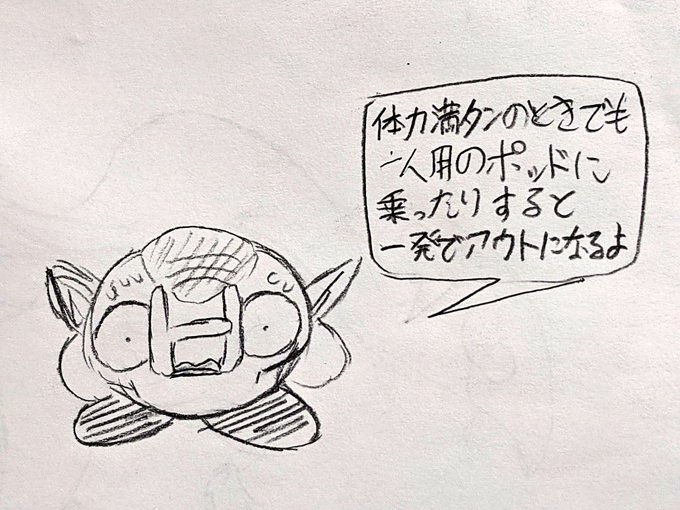 体力満タンのときでも
一人用のポッドに
乗ったりすると
一発でアウトになるよ